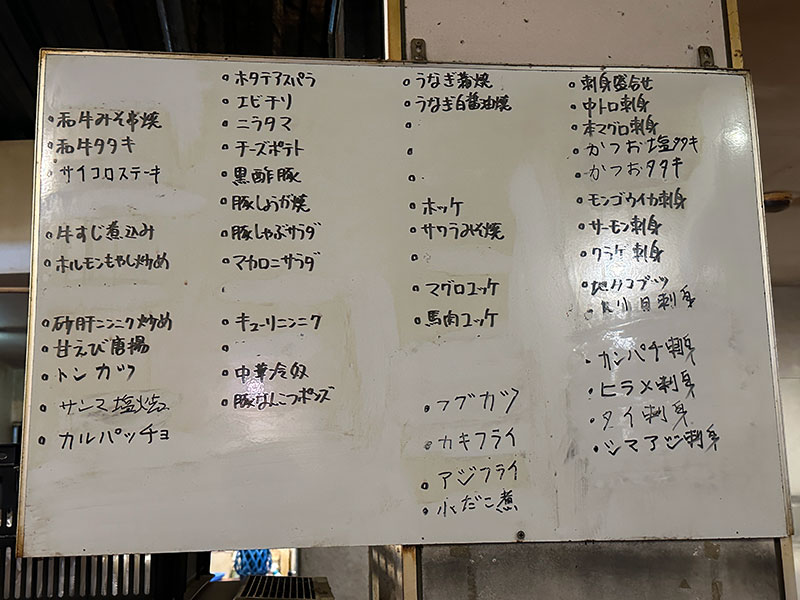 和牛みそ串焼
和牛タタキ
サイコロステーキ
牛すじ煮込み
ホルモンもやし炒め
砂肝ニンニク炒め
甘えび唐揚
トンカツ
サンマ塩焼
カルパッチョ
ホタテアスパラ
エビチリ
ニラタマ
チーズポテト
黒酢豚
豚しょうが焼
豚しゃぶサラダ
マカロニサラダ
キューリニンニク
中華冷奴
豚なんこつポンズ
うなぎ蒲焼
うなぎ白醤油焼
ホッケ
サワラみそ焼
マグロユッケ
馬肉ユッケ
フグカツ
カキフライ
アジフライ
小だこ煮
刺身盛合せ
中トロ刺身
本マグロ刺身
かつお塩タタキ
かつおタタキ
モンゴウイカ刺身
サーモン刺身
クラゲ刺身
刺身
カンパチ刺身
ヒラメ刺身
タイ刺身
シマアジ刺身